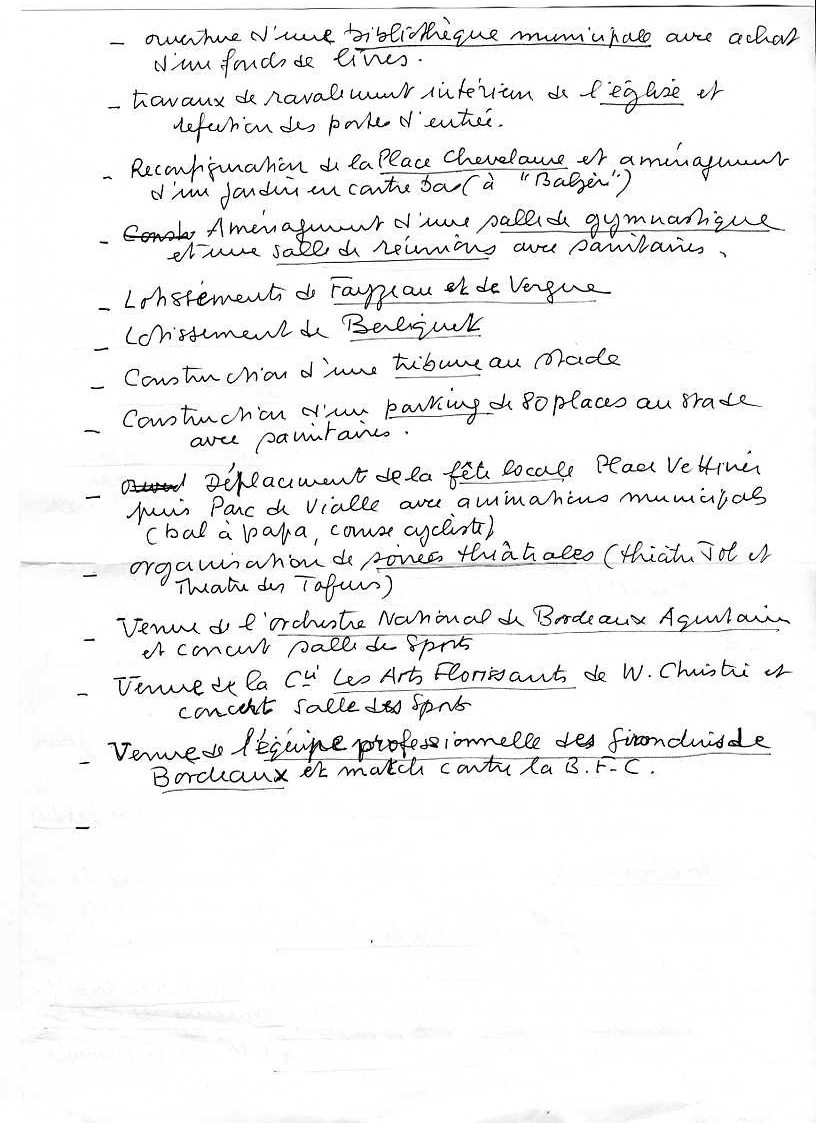 - ouverture d'une bibliothèque municipale avec achat
d'un fonds de livres.
- travaux de ravalement intérieur de l'église et
refection des portes d'entrée.
- Reconfiguration de la Place Chevelaure et aménagement
d'un jardin en contre bas (à "Balzer")
- Constr Aménagement d'une salle de gymnastique
et une salle de réunions avec sanitaires.
- Lotissements de Fayzeau et de Vergne
- Lotissement de Berliquet
- Construction d'une tribune au stade
- Construction d'un parking de 80 places au stade
avec sanitaires.
- Déplacement de la fête locale Place Vettiner
puis Parc de Vialle avec animations municipals
(bal à papa, course cycliste)
- organisation de soirées théâtrales (théâtre Job et
Theatre des Tafurs)
- Venue de l'orchestre National de Bordeaux Aquitaine
et concert salle de Sports
- Venue de la Cie Les Arts Florissants de W. Christie et
concert salle des Sports
- Venue de l'équipe professionnelle des Girondins de
Bordeaux et match contre la B.F-C.
-